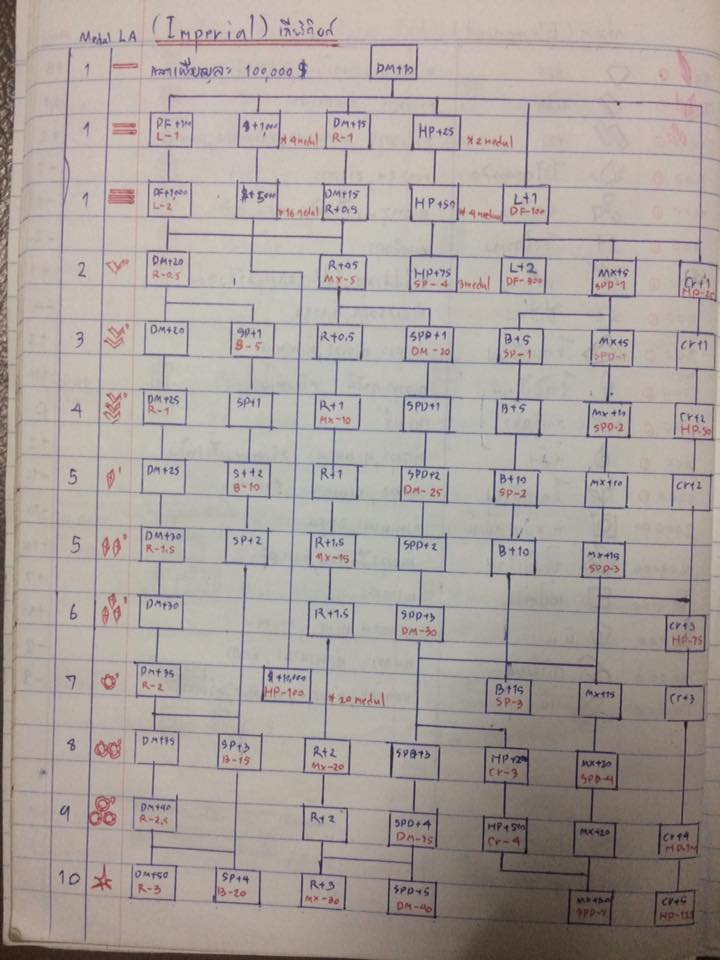 Medal LA (Imperial) เกียรติยศ
1 100,000 $ DM+10
1 DF+500 L-1 $+1,000 *4medul DM+15 R-1 HP+25 *2medul
1 DF+1,000 L-2 $+5000 *16medul DM+15 R+0.5 HP+50 *4medul L+1 DF-100
2 DM+20 R-0.5 R+0.5 MX-5 HP+75 SP-4 3medul L+2 DF-800 MX+5 SPD-1 Cr+1 HP-25
3 DM+20 SP+1 B-5 R+0.5 SPD+1 DM-20 B+5 SP-1 MX+5 SPD-1 Cr+1
4 DM+25 R-1 SP+1 R+1 MX-10 SPD+1 B+5 MX+10 SPD-2 Cr+2 HP-50
5 DM+25 B-10 R+1 SPD+2 DM-25 B+10 SP-2 MX+10 Cr+2
5 DM+30 R-1.5 SP+2 R+1.5 MX-15 SPD+2 B+10 MX+15 SPD-3
6 DM+30 R+1.5 SPD+3 DM-30 Cr+3 HP-75
7 DM+35 R-2 $+10,000 HP-100 *20medul B+15 SP-3 MX+15 Cr+3
8 DM+35 SP+3 B-15 R+2 MX-20 SPD+3 HP+200 Cr-3 MX+20 SPD-4
9 DM+40 R-2.5 R+2 SPD+4 DM-35 HP+500 Cr-4 MX+20 Cr+4
10 DM+50 R-3 SP+4 B-20 R+3 MX-30 SPD+5 DM-40 MX+30 Cr+5 HP-125